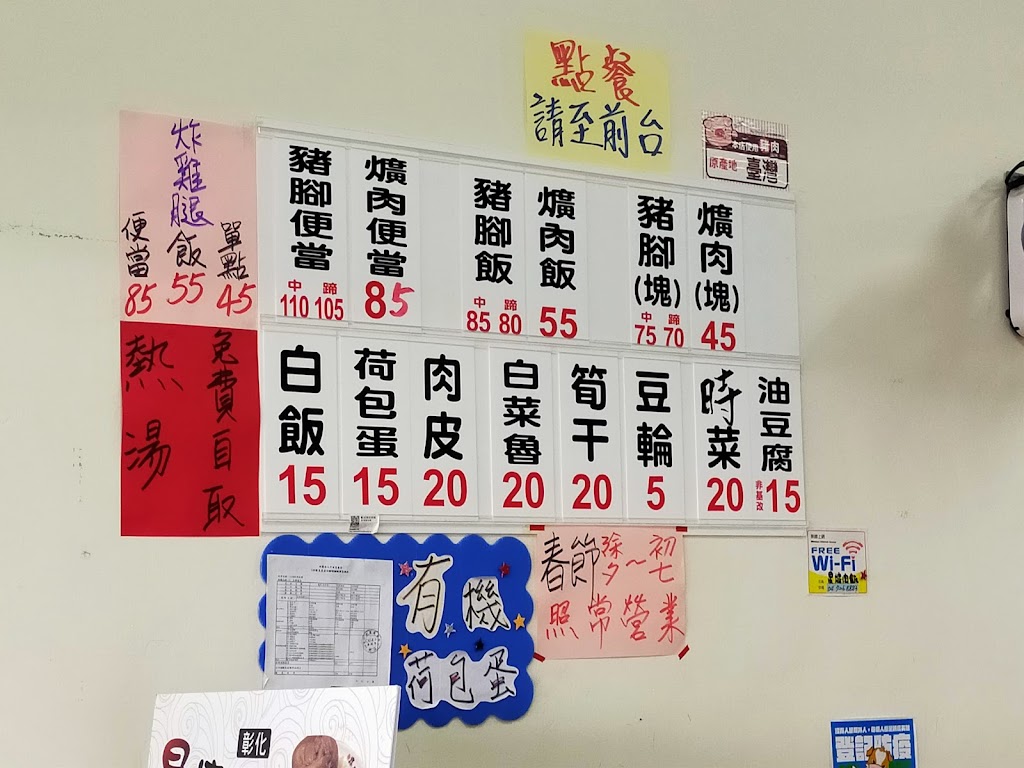 點餐
請至前台
本店使用豬肉
原產地
臺灣
炸雞腿飯
55
便當
85
單點
45
熱湯
免費自取
豬腳便當
中 蹄
110 105
爌肉便當
85
豬腳飯
中 蹄
85 80
爌肉飯
55
豬腳(塊)
中 蹄
75 70
爌肉(塊)
45
白飯
15
荷包蛋
15
肉皮
20
白菜魯
20
筍干
20
豆輪
5
時菜
20
油豆腐
非基改
15
有機
荷包蛋
春節除夕~初七
照常營業
FREE
Wi-Fi
彰化
登記防疫